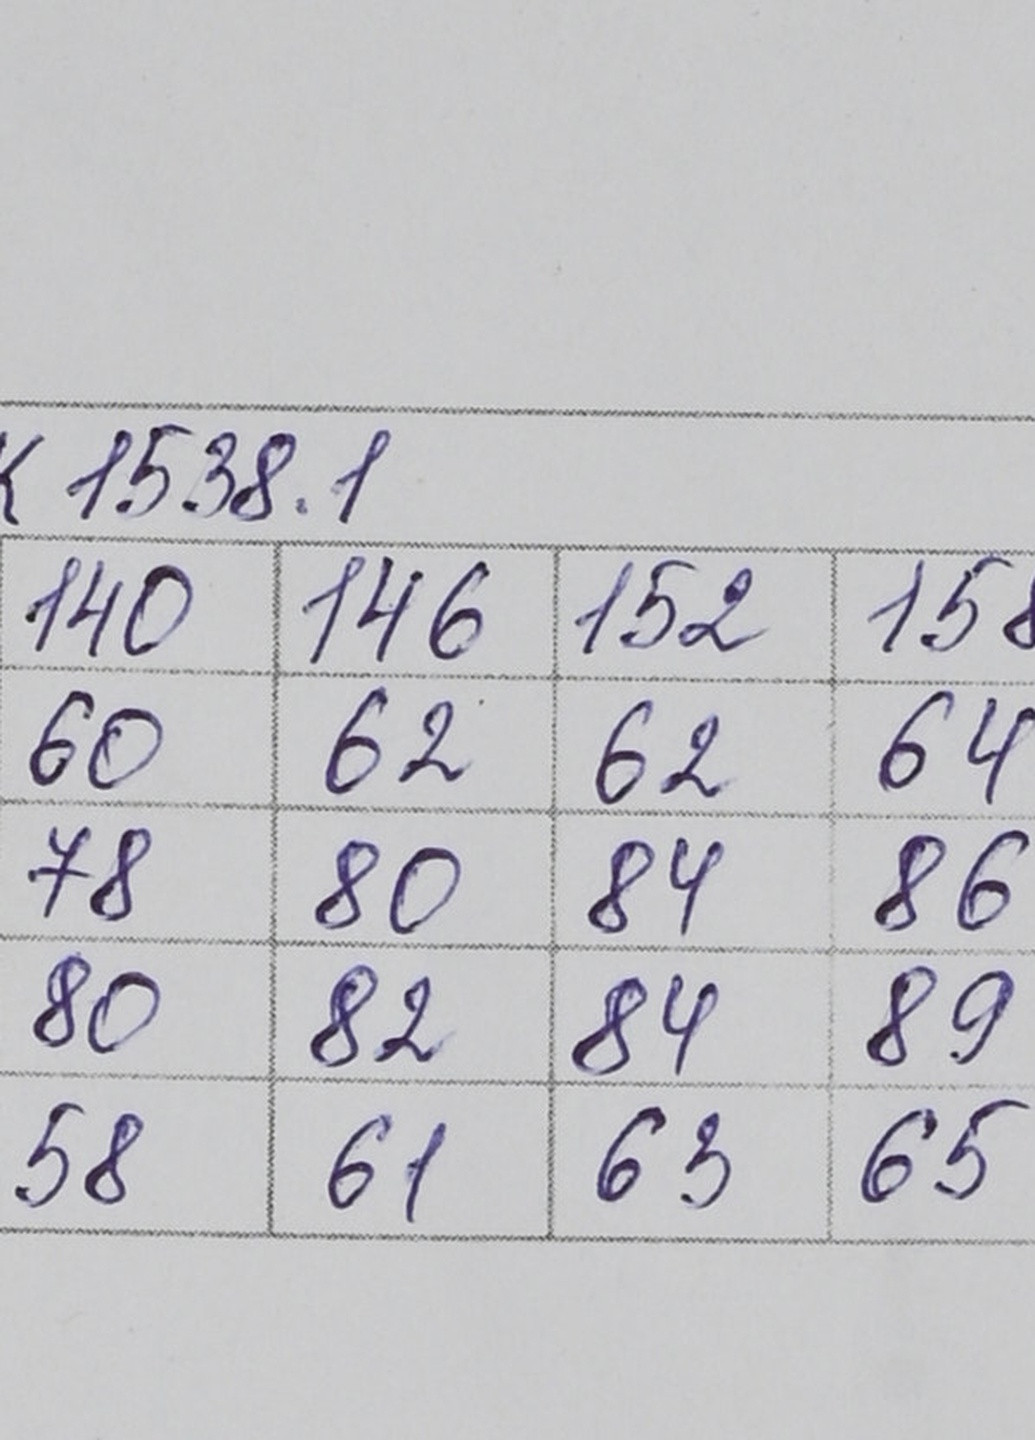 К 1538.1
140 146 152 158
60 62 62 64
78 80 84 86
80 82 84 89
58 61 63 65